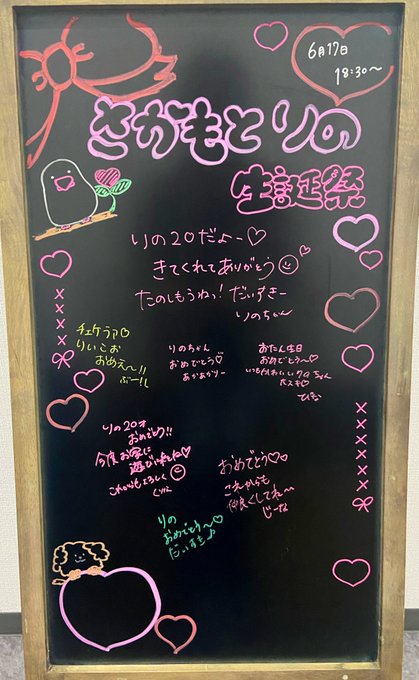 6月17日
18:30〜
さかもとりの
生誕祭
りの20だよー♡
きてくれてありがとう
たのしもうねっ!だいすきー
りのちゃん
チェケラァ♡
りいこお
おめえ〜!!
ぶー!!
りのちゃん
おめでとう♡
あかあかりー
おたん生日
おめでとう〜♡
いつもかわいい
ちゃん
大スキ♡
りの20才
おめでとう!!
今度お家に
遊びいれてね♡
これからもよろしく
おめでとう♡
これからも
仲良くしてね〜
じーな
りの
おめでとう〜♡
だいすき♪